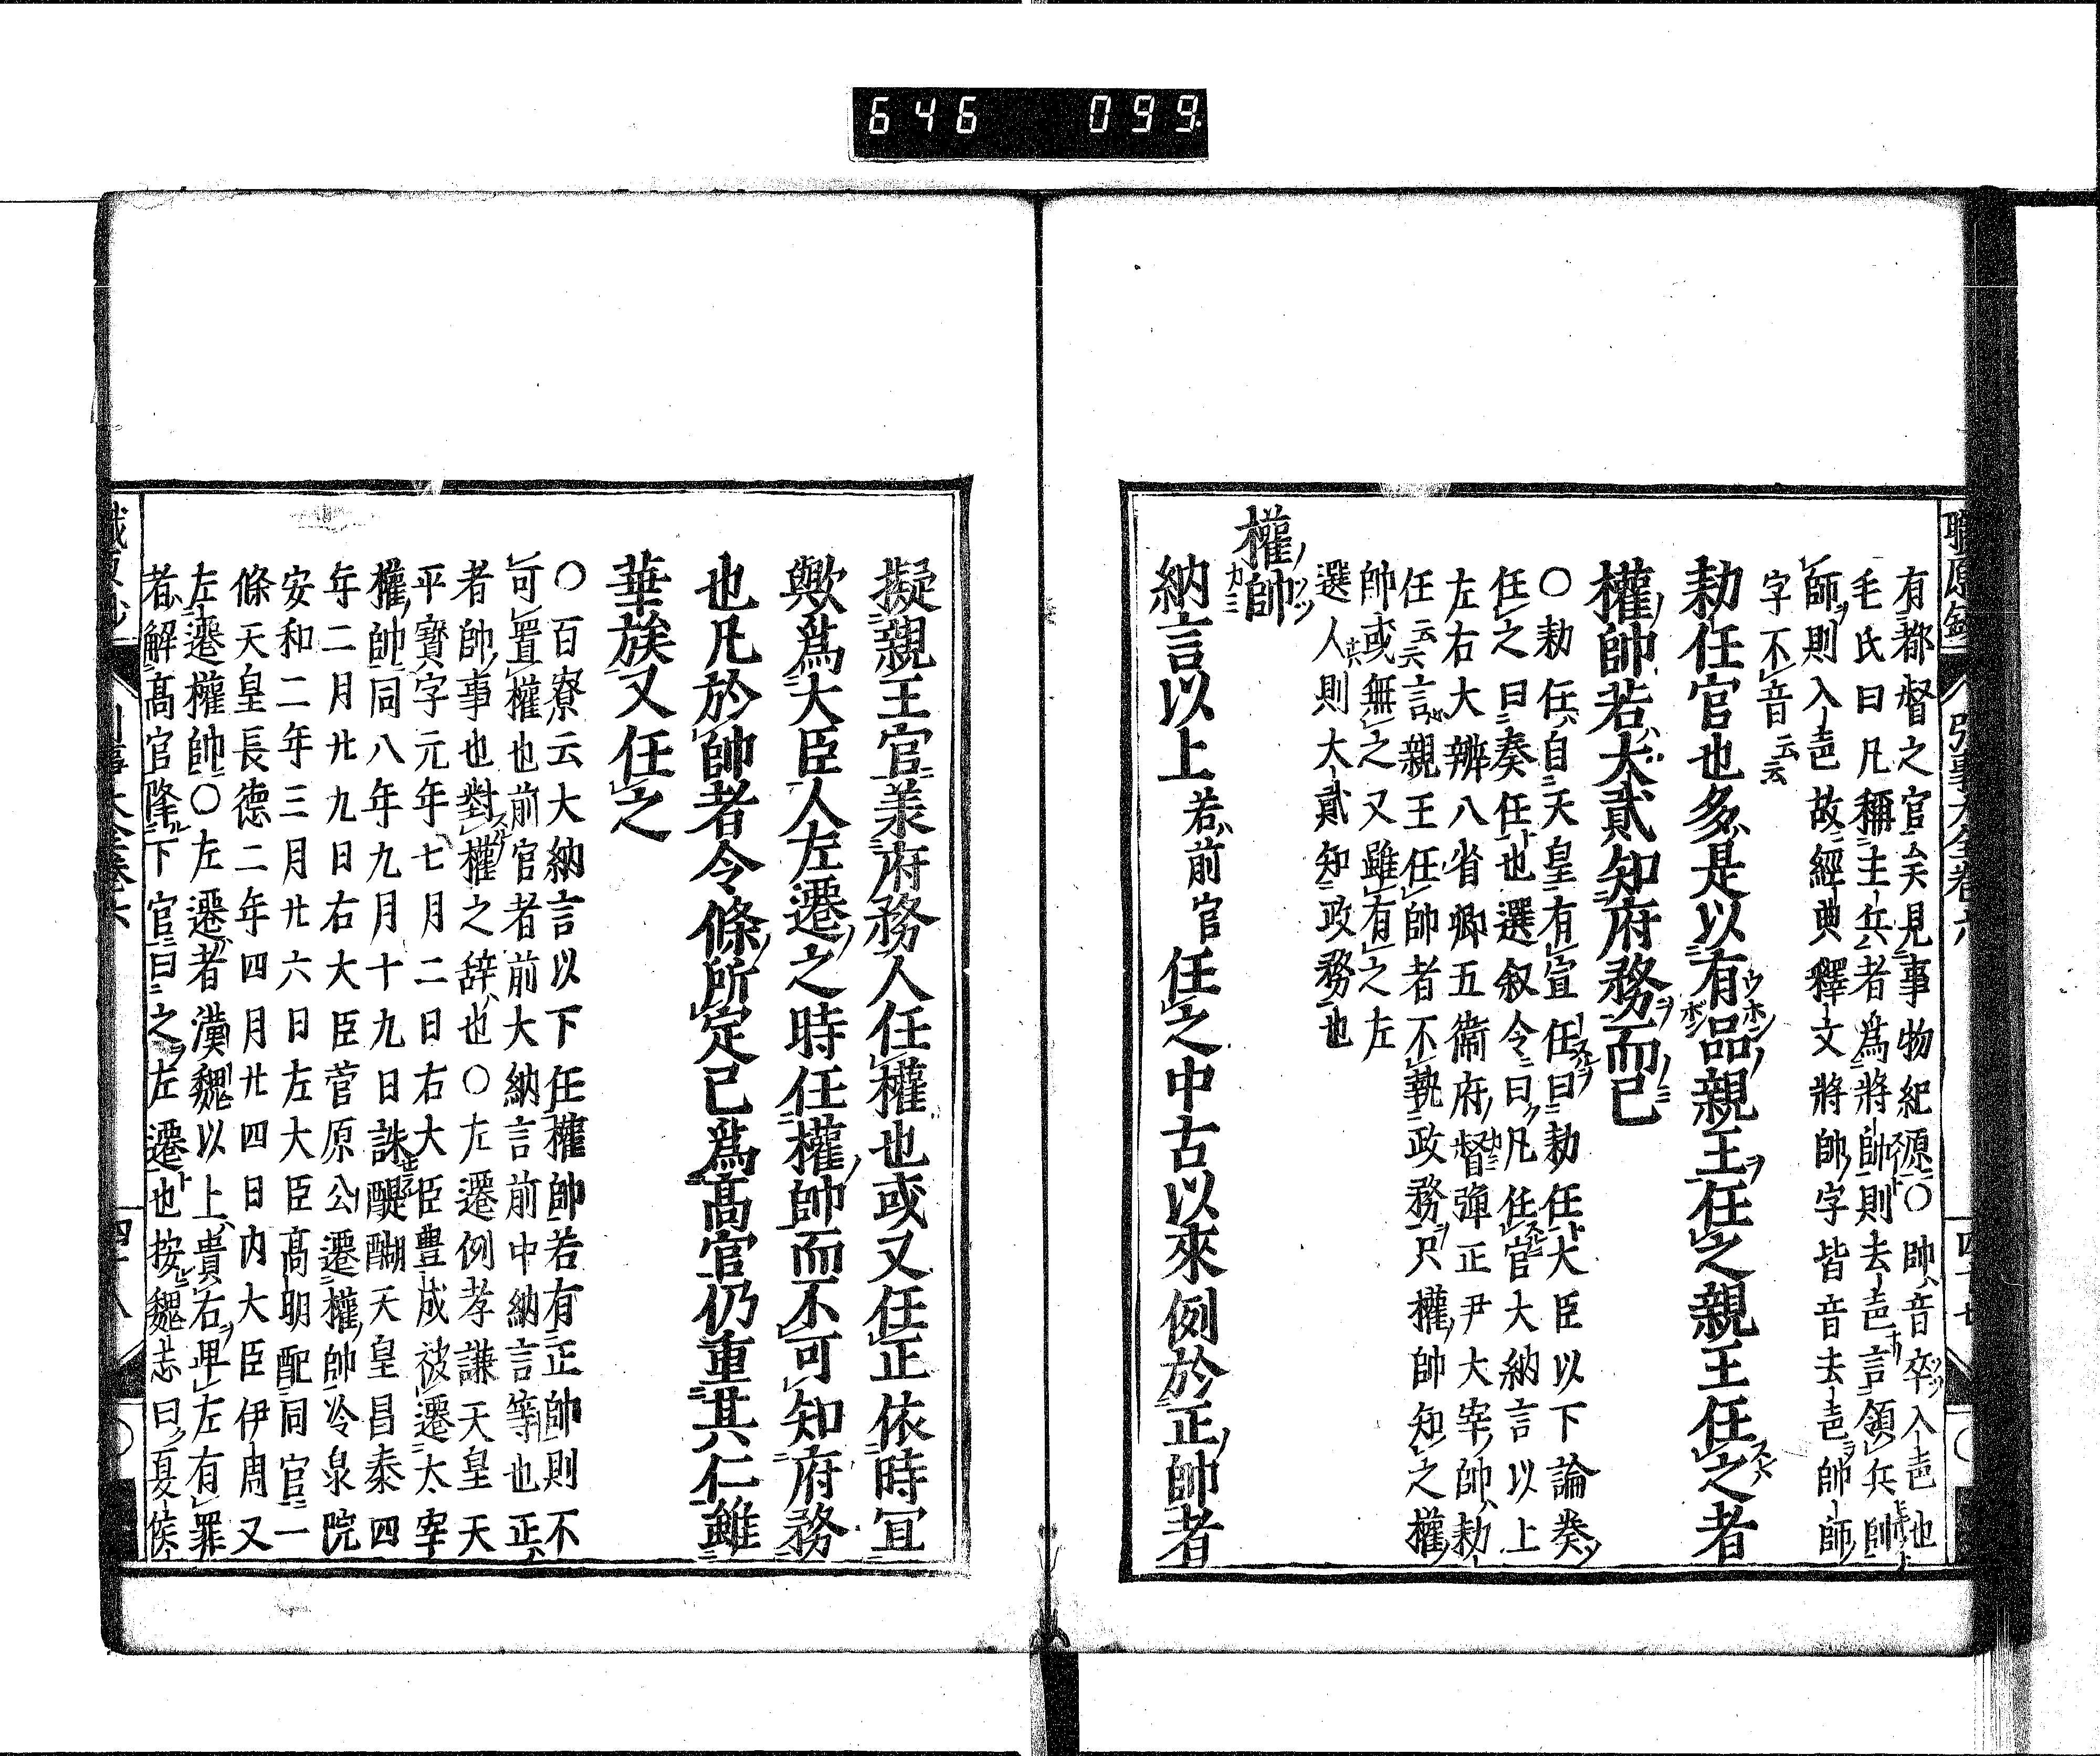 646 099
有都督之官矣見事物紀源○帥音卒入声也
毛氏曰凡稱主兵者為將帥則去声言領兵帥
師則入声故經典釋文將帥字皆音去声帥師
字不音云云
勅任官也多是以有品親王任之親王任之者
權帥若大貳知府務而已
○勅任自天皇有宣任曰勅任大臣以下論奏
任之曰奏任也選叙令曰凡任官大納言以上
左右大辨八省卿五衛府督彈正尹大宰帥勅
任云云言親王任帥者不執政務只權帥知之權
帥或無之又雖有之左
選人則大貳知政務也
權帥
納言以上若前官任之中古以來例於正帥者
擬親王官業府務人任權也或又任正依時宜
歟爲大臣人左遷之時任權帥而不可知府務
也凡於帥者令條所定已爲高官仍重其仁雖
華族又任之
○百寮云大納言以下任權帥若有正帥則不
可置權也前官者前大納言前中納言等也正
者帥事也對權之辞也○左遷例孝謙天皇天
平寶字元年七月二日右大臣豊成被遷太宰
權帥同八年九月十九日誅醍醐天皇昌泰四
年二月廿九日右大臣菅原公遷權帥冷泉院
安和二年三月廿六日左大臣高明配同官一
條天皇長德二年四月廿四日内大臣伊周又
左遷權帥○左遷者漢魏以上貴右卑左有罪
者解高官降下官曰之左遷也按魏志曰夏侯